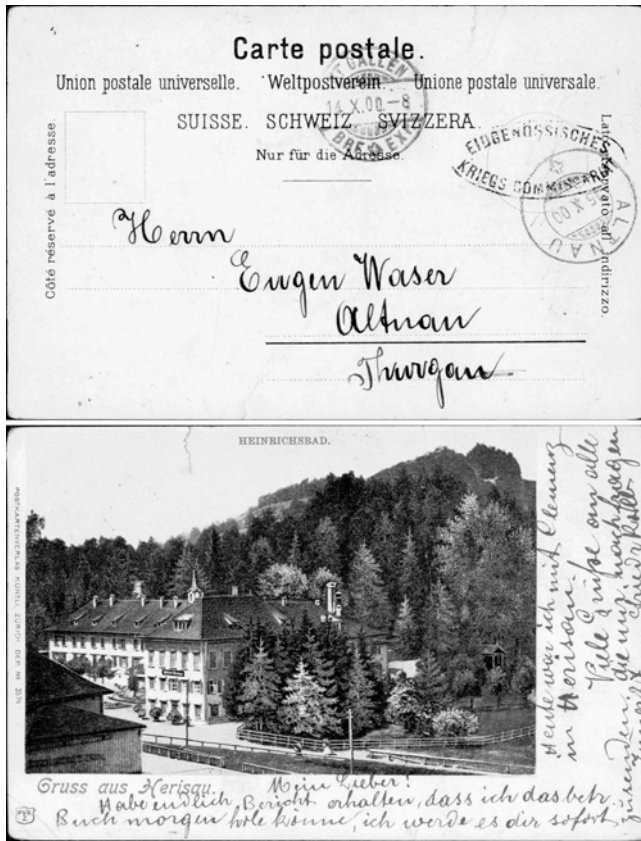 Carte postale.
Union postale universelle. Weltpostverein. Unione postale universale.
SUISSE. SCHWEIZ. SVIZZERA.
Nur für die Adresse.
Côté réservé à l'adresse.
Lato riservato all' indirizzo.
ST GALLEN
14.X.00.-8
BRF. EXP.
EIDGENÖSSISCHES
KRIEGS COMMISSARIAT
ALTNAU
Herrn
Eugen Waser
Altnau
Thurgau
HEINRICHSBAD.
POSTKARTENVERLAG KÜNZLI, ZÜRICH DEP. Nr
Gruss aus Herisau.
Mein Lieber!
Habe endlich Bericht erhalten, dass ich das betr.
Buch morgen hole könne, ich werde es dir sofort
Heute war ich mit Clemenz
in Herisau.
Viele Grüsse an alle
die mir nachfragen